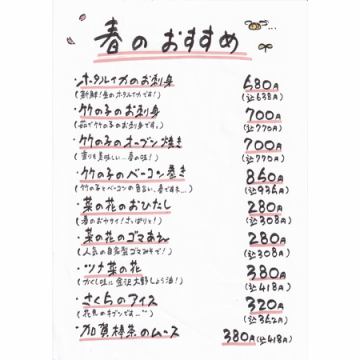 春のおすすめ
・ホタルイカのお刺身 580円
(新鮮!生のホタルイカです!) (込638円)
・竹の子のお刺身 700円
(茹で竹の子のお刺身です。) (込770円)
・竹の子のオーブン焼き 700円
(香りも美味しい…春の味!) (込770円)
・竹の子のベーコン巻き
(竹の子とベーコンの 春ですネ…) (込936円)
・菜の花のおひたし 280円
(春のおヤサイ!さっぱりと!) (込308円)
・菜の花のゴマあえ 280円
(人気の自家製ゴマみそで!) (込308円)
・ツナ菜の花 380円
(かくし味に金沢大野しょう油!) (込418円)
・さくらのアイス 320円
(花見のキブンです…) (込352円)
・加賀棒茶のムース 380円(込418円)